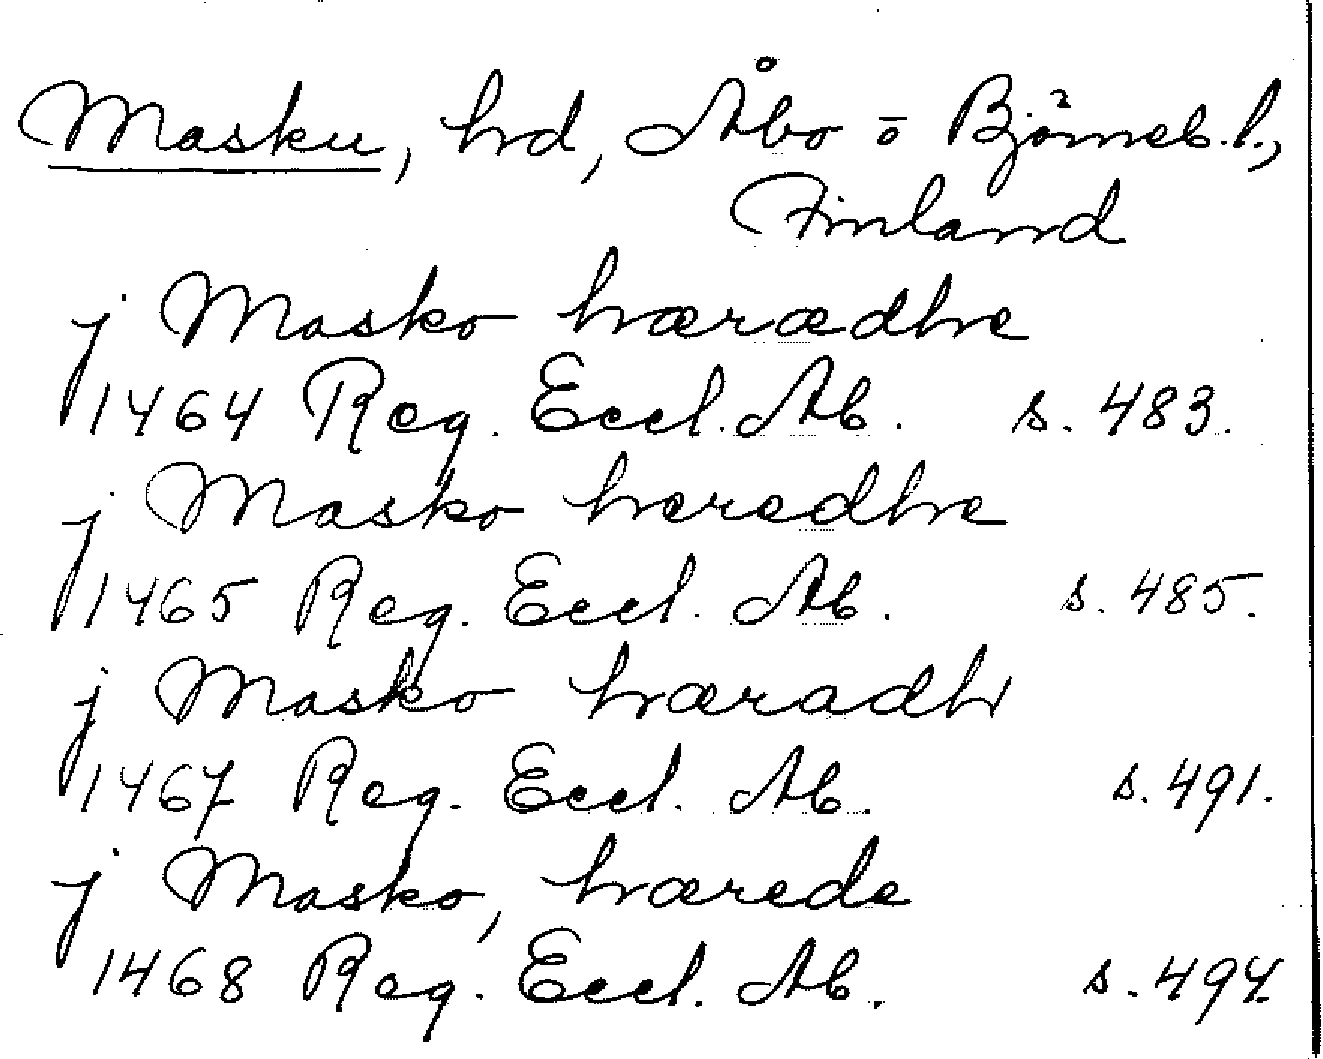 Masku, hd, Åbo o Björneb. l.,
Finland
j Masko hærædhe
1464 Reg. Eccl. Ab. s. 483.
j Masko heredhe
1465 Reg. Eccl. Ab. s. 485.
j Masko hæradh
1467 Reg. Eccl. Ab. s. 491.
j Masko, hærede
1468 Reg. Eccl. Ab. s. 494